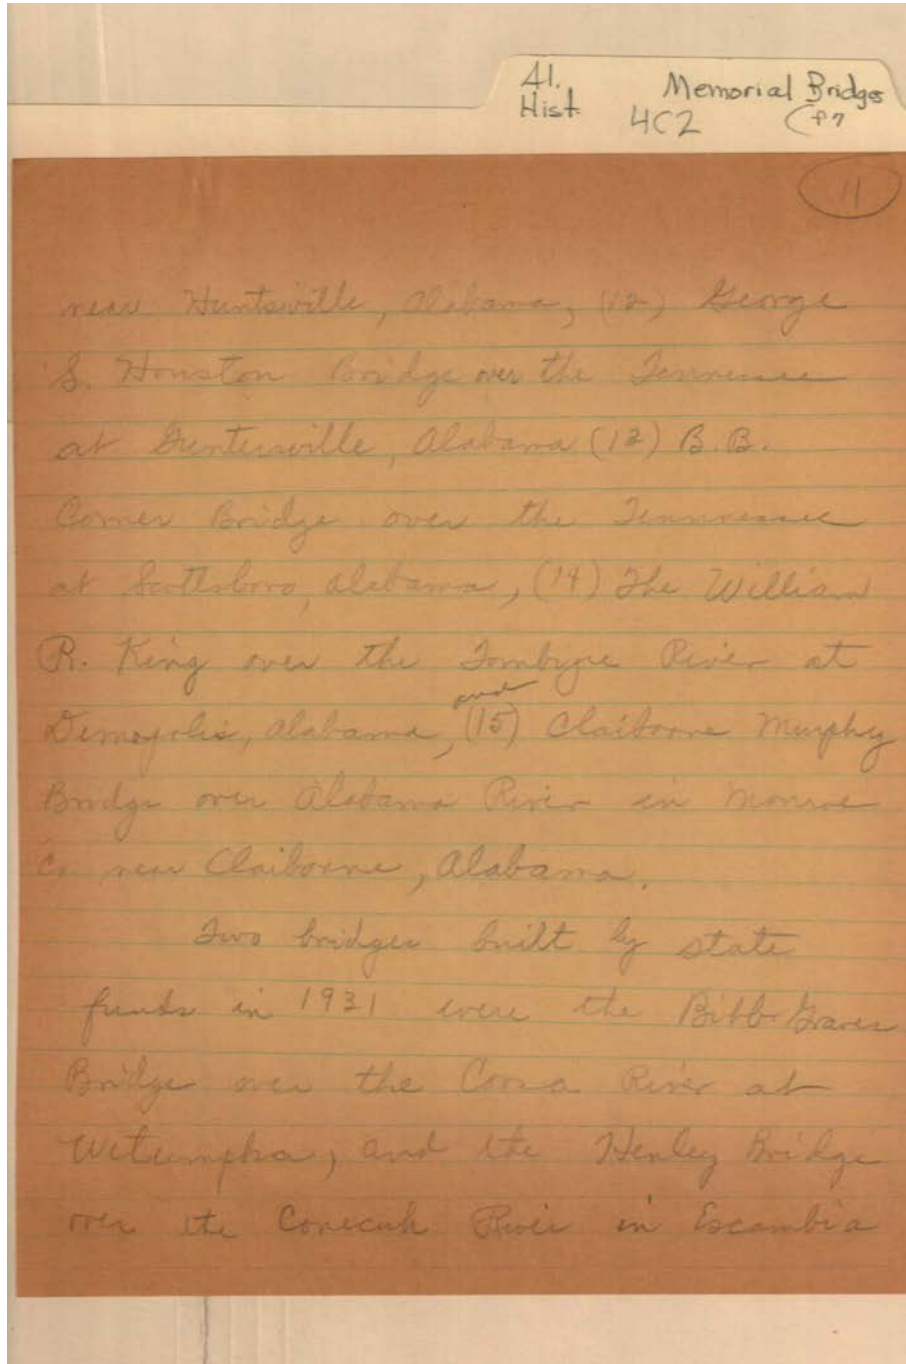 Al. Memorial Bridges
Hist. 4C2 (P7
11
near Huntsville, Alabama, (12) George
S. Houston Bridge over the Tennessee
at Guntersville, Alabama (13) B.B.
Comer Bridge over the Tennessee
at Scottsboro, Alabama, (14) The William
R. King over the River at
and
Demopolis, Alabama, (15) Claiborne Murphy
Bridge over Alabama River in Monroe
Co near Claiborne, Alabama.
Two bridges built by state
funds in 1931 were the Bibb Graves
Bridge over the Coosa River at
Wetumpka, and the Henley Bridge
over the Conecuh River in Escambia